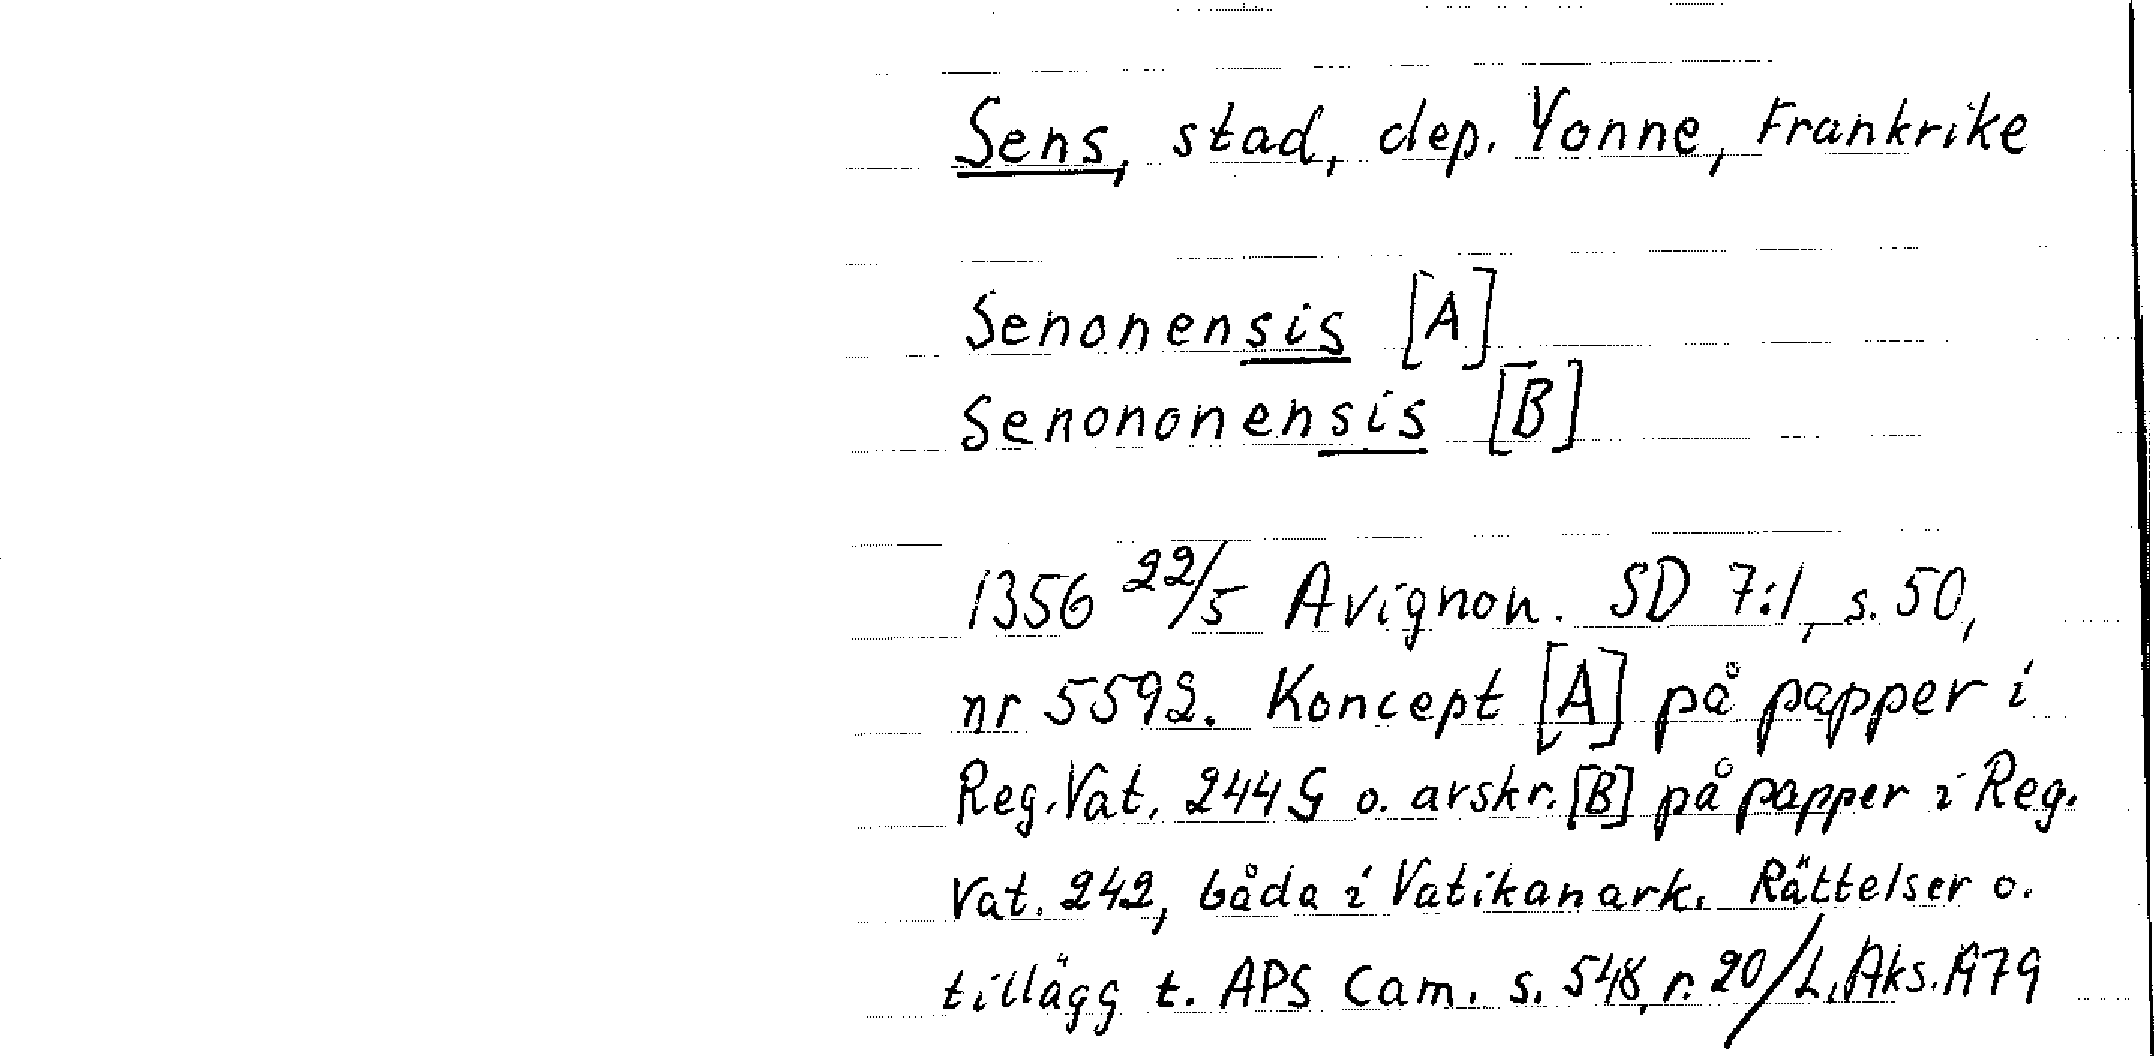 Sens, stad, dep. Yonne, Frankrike
Senonensis [A]
Senononensis [B]
1356 22/5 Avignon. SD 7:1, s. 50,
nr 5592. Koncept [A] på papper i
Reg. Vat. 244G o. avskr. [B] på papper i Reg.
Vat. 242, båda i Vatikanark. Rättelser o.
tillägg t. APS Cam. s. 548, r. 20/L. Aks. 1979